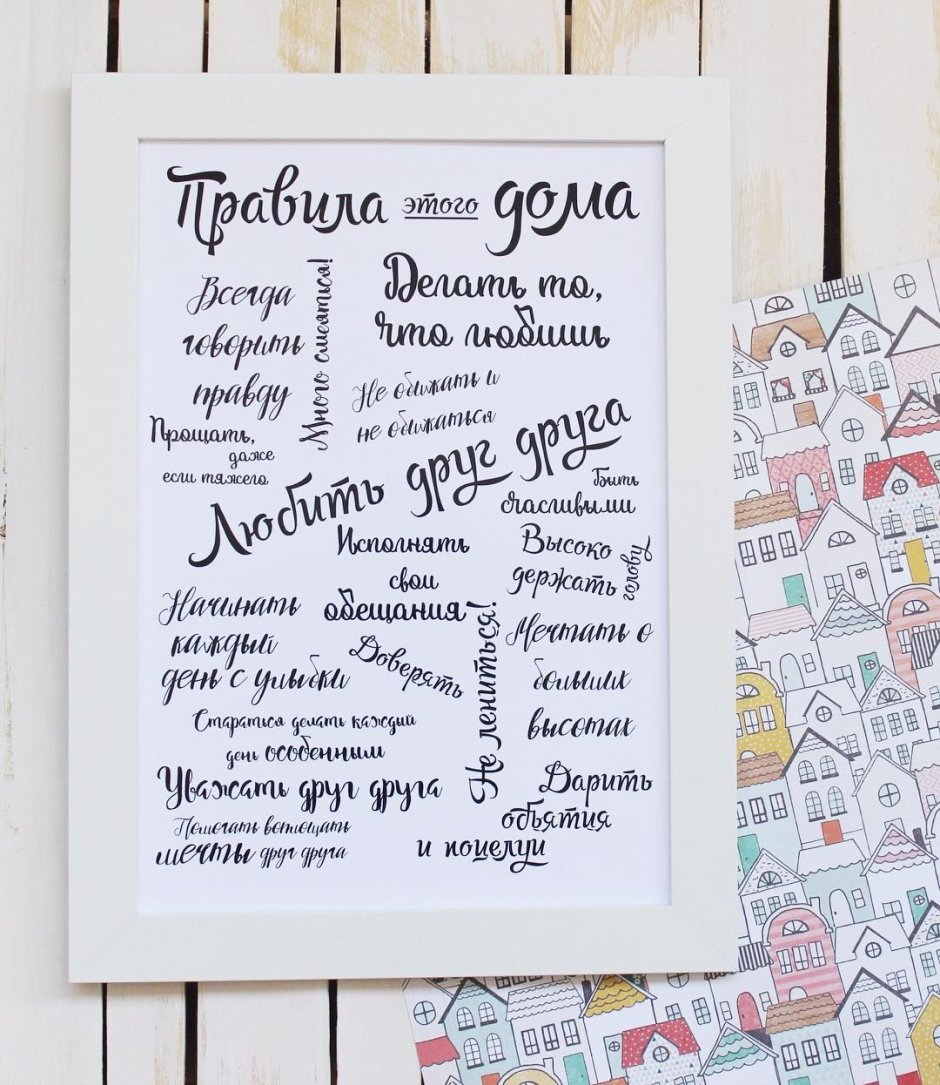 Правила этого дома
Всегда
говорить
правду
Много смеяться!
Делать то,
что любишь
Не обижать и
не обижаться
Прощать,
даже
если тяжело
Любить друг друга
Быть
счасливыми
Исполнять
свои
обещания
Высоко
держать
голову
Начинать
каждый
день с улыбки
Доверять
Не лениться!
Мечтать о
больших
высотах
Стараться делать каждый
день особенным
Уважать друг друга
Дарить
объятия
и поцелуи
Помогать воплощать
мечты друг друга